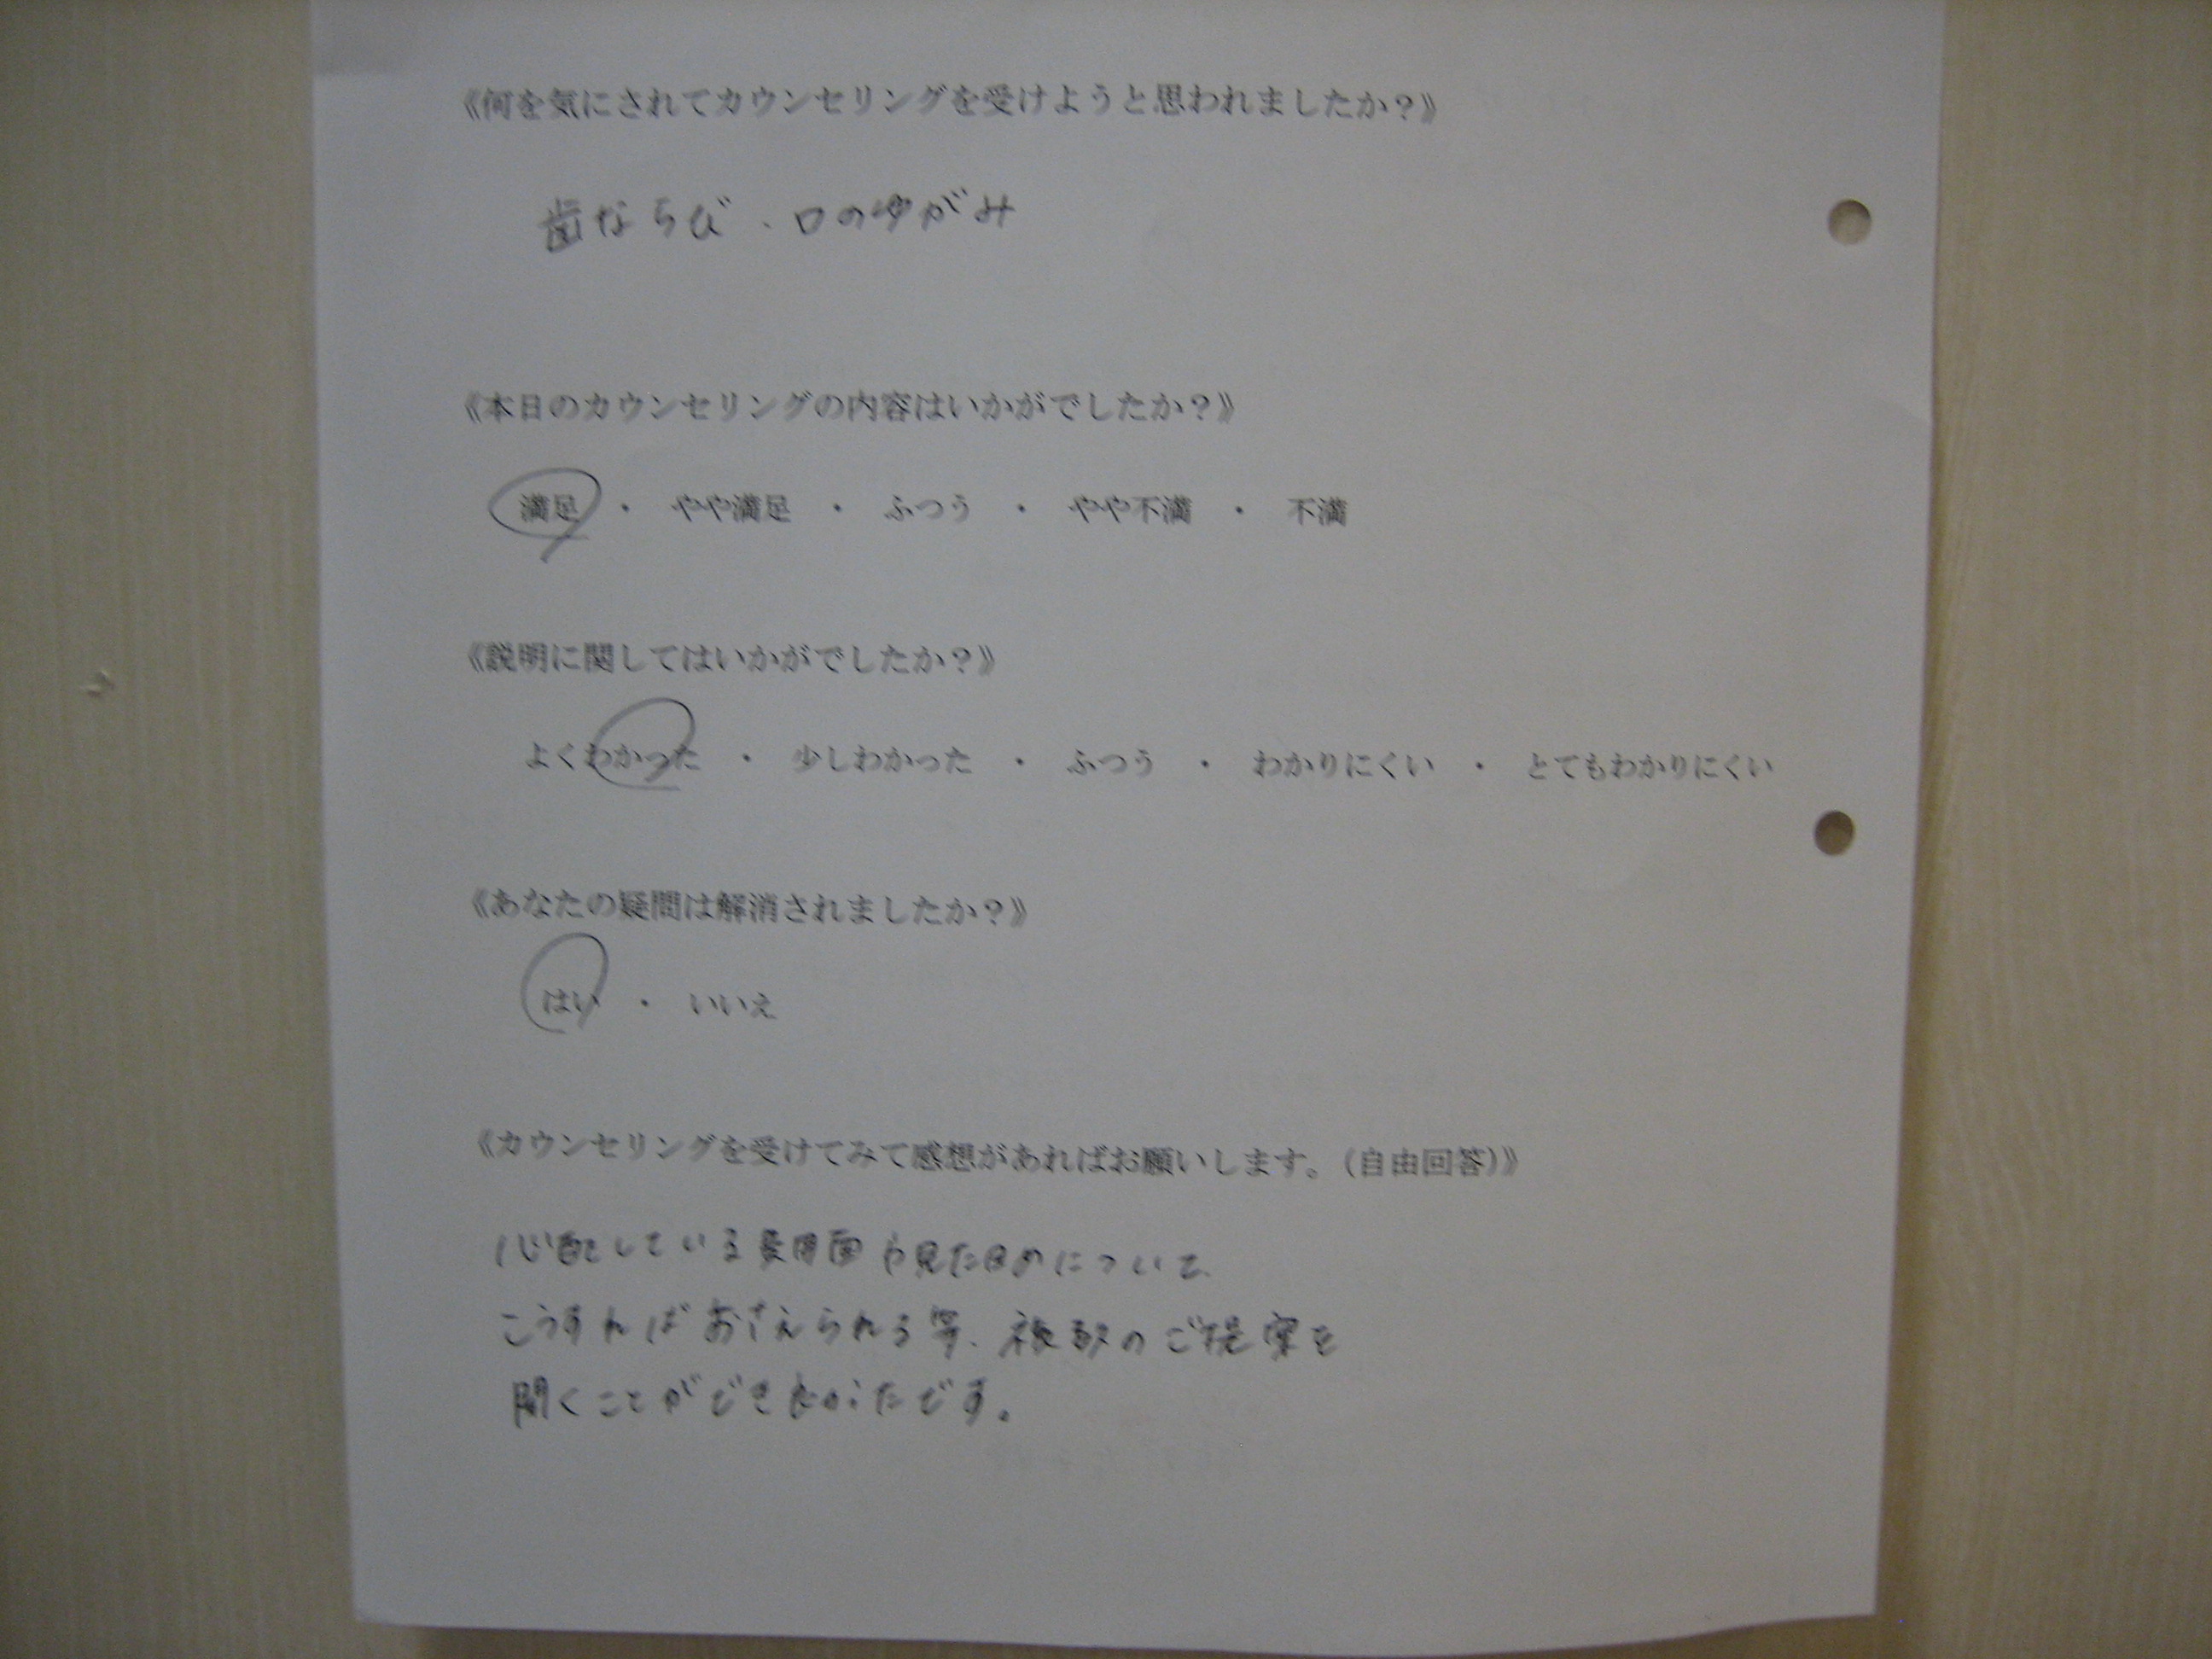 《何を気にされてカウンセリングを受けようと思われましたか？》
歯ならび、口のゆがみ
《本日のカウンセリングの内容はいかがでしたか？》
満足 ・ やや満足 ・ ふつう ・ やや不満 ・ 不満
《説明に関してはいかがでしたか？》
よくわかった ・ 少しわかった ・ ふつう ・ わかりにくい ・ とてもわかりにくい
《あなたの疑問は解消されましたか？》
はい ・ いいえ
《カウンセリングを受けてみて感想があればお願いします。（自由回答）》
心配している費用面や見ための について
こうすればおさえられる等、複数のご提案を
聞くことができ良かったです。